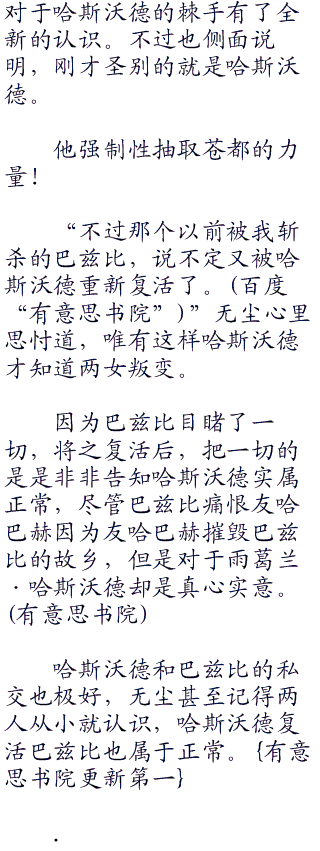 对于哈斯沃德的棘手有了全
新的认识。不过也侧面说
明，刚才圣别的就是哈斯沃
德。
他强制性抽取苍都的力
量！
“不过那个以前被我斩
杀的巴兹比，说不定又被哈
斯沃德重新复活了。(百度
“有意思书院”)”无尘心里
思忖道，唯有这样哈斯沃德
才知道两女叛变。
因为巴兹比目睹了一
切，将之复活后，把一切的
是是非非告知哈斯沃德实属
正常，尽管巴兹比痛恨友哈
巴赫因为友哈巴赫摧毁巴兹
比的故乡，但是对于雨葛兰
·哈斯沃德却是真心实意。
(有意思书院)
哈斯沃德和巴兹比的私
交也极好，无尘甚至记得两
人从小就认识，哈斯沃德复
活巴兹比也属于正常。{有意
思书院更新第一}
.